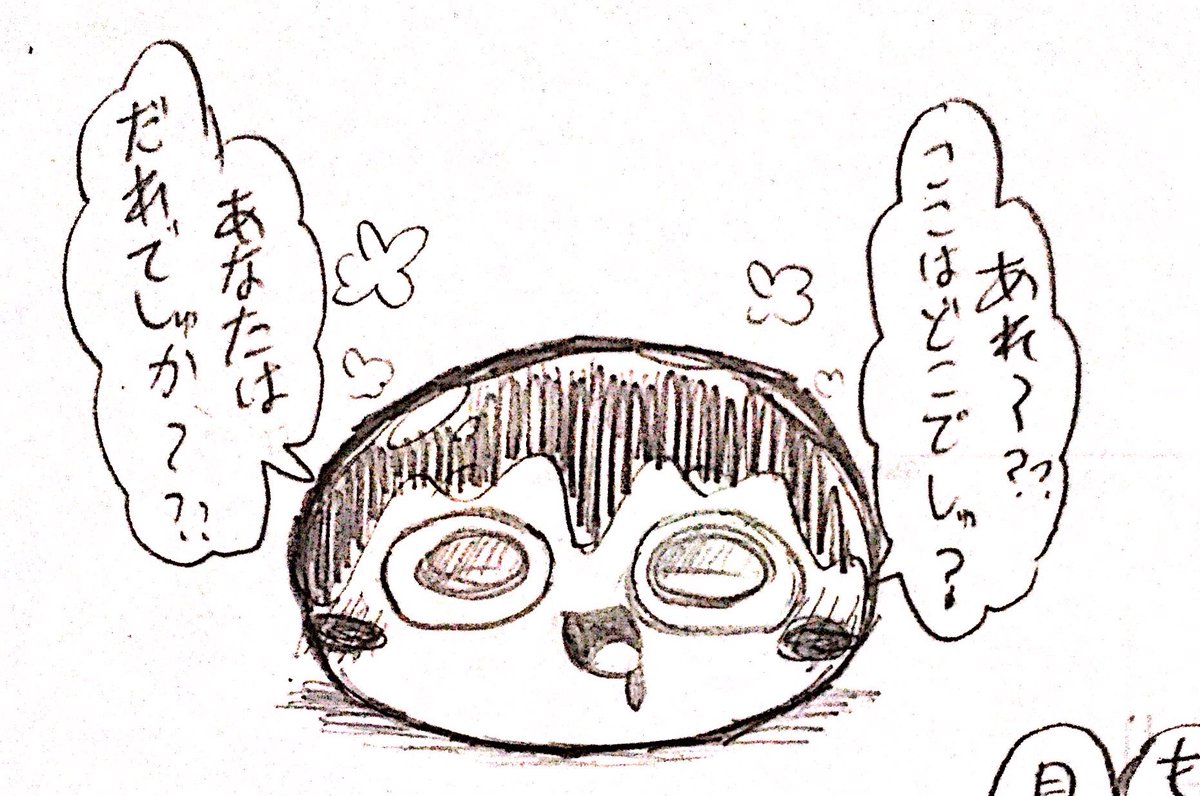 あれ〜??
ここはどこでしゅ?
あなたは
だれでしゅか〜??
も
見